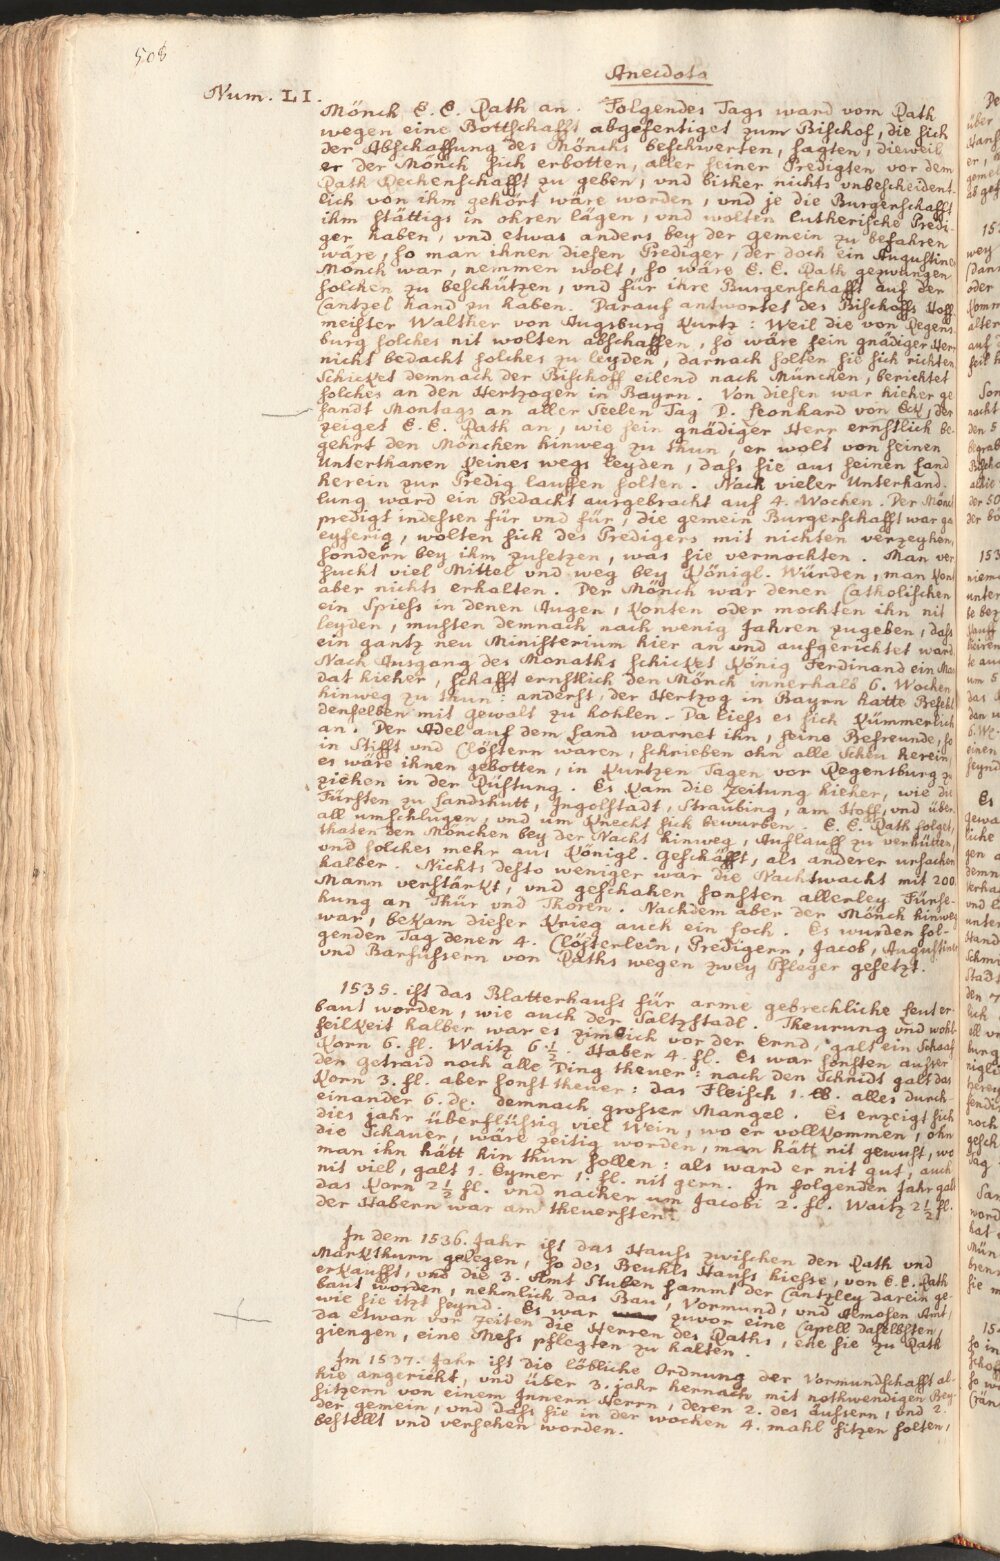 508
Anecdota
Num. LI.
Mönch E. E. Rath an. Folgendes Tags ward vom Rath
wegen eine Bottschafft abgefertiget zum Bischof, die sich
der Abschaffung des Mönchs beschwerten, sagten, dieweil
er der Mönch sich erbotten, aller seiner Predigten vor dem
Rath Rechenschafft zu geben, und bisher nichts unbescheident-
lich von ihm gehört wäre worden, und je die Burgerschafft
ihm stättigs in ohren lägen, und wolten Lutherische Predi-
ger haben, und etwas anders bey der gemein zu befahren
wäre, so man ihnen diesen Prediger, der doch ein Augustiner
Mönch war, nemmen wolt, so wäre E. E. Rath gezwungen
solchen zu beschützen, und für ihre Burgerschafft auf der
Cantzel hand zu haben. Darauf antwortet des Bischoffs Hoff-
meister Walther von Augsburg Kurtz: Weil die von Regens-
burg solches nit wolten abschaffen, so wäre sein gnädiger Herr
nicht bedacht solches zu leyden, darnach solten sie sich richten
Schicket demnach der Bischoff eilend nach München, berichtet
solches an den Hertzogen in Bayrn. Von diesen war hieher ge-
sandt Montags an aller Seelen Tag D. Leonhard von Eck, der
zeiget E. E. Rath an, wie sein gnädiger Herr ernstlich be-
gehrt den Mönchen hinweg zu thun, er wolt von seinen
Unterthanen Keines wegs leyden, dass sie aus seinen Land
herein zur Predig lauffen solten. Nach vieler Unterhand-
lung ward ein Bedacht ausgebracht auf 4. Wochen. Der Mönch
predigt indessen für und für, die gemein Burgerschafft war ga
eyferig, wolten sich des Predigers mit nichten verzeyhen,
sondern bey ihm zusetzen, was sie vermochten. Man ver
sucht viel Mittel und weg bey Königl. Würden, man Kont
aber nichts erhalten. Der Mönch war denen Catholischen
ein Spiess in denen Augen, Konten oder mochten ihn nit
leyden, musten demnach nach wenig Jahren zugeben, dass
ein gantz neu Ministerium hier an und aufgerichtet ward
Nach Ausgang des Monaths schicket König Ferdinand ein Man
dat hieher, schafft ernstlich den Mönch innerhalb 6. Wochen
hinweg zu thun: anderst, der Hertzog in Bayrn hatte Befehl
denselben mit gewalt zu hohlen. Da liess es sich Kümmerlich
an. Der Adel auf dem Land warnet ihn, seine Befreunde, so
in Stifft und Clöstern waren, schrieben ohn alle Scheu herein,
es wäre ihnen gebotten, in Kurtzen Tagen vor Regensburg zu
ziehen in der Rüstung. Es Kam die Zeitung hieher, wie die
Fürsten zu Landshutt, Ingolstadt, Straubing, am Hoff, und über
all umschlugen, und um Knecht sich bewurben. E. E. Rath folget,
thaten den Mönchen bey der Nacht hinweg, Aufflauff zu verhütten,
und solches mehr aus Königl. Geschäfft, als anderer ursachen
halber. Nichts desto weniger war die Nachtwacht mit 200
Mann verstärkt, und geschahen sonsten allerley Fürse-
hung an Thür und Thoren. Nachdem aber der Mönch hinweg
war, beKam dieser Krieg auch ein Loch. Es wurden fol-
genden Tag denen 4. Clösterlein, Predigern, Jacob, Augustiner
und Barfüssern von Raths wegen zwey Pfleger gesetzt.
1535. ist das Blatterhauss für arme gebrechliche Leut er-
baut worden, wie auch der Saltzstadl. Theurung und wohl-
feilkeit halber war es zimlich vor der Ernd, galt ein Schaaf
Korn 6. fl. Waitz 6 1/2. Haber 4. fl. Es war sonsten ausser
den getraid noch alle Ding theuer: nach den Schnidt galt das
Korn 3. fl. aber sonst theuer: das Fleisch 1. lb. alles durch-
einander 6. dl. demnach grosser Mangel. Es erzeigt sich
dies jahr überflüssig viel Wein, wo er vollKommen, ohn
die Schauer, wäre zeitig worden, man hätt nit gewust, wo
man ihn hätt hin thun sollen: als ward er nit gut, auch
nit viel, galt 1. Eymer 1. fl. nit gern. In folgenden Jahr galt
das Korn 2 1/2 fl. und nacher um Jacobi 2. fl. Waitz 2 1/2 fl.
der Habern war am theuersten.
In dem 1536. Jahr ist das Hauss zwischen den Rath und
MarKthurn gelegen, so des Beuhls Hauss hiesse, von E. E. Rath
erKaufft, und die 3. Amt Stuben sammt der Cantzley darein ge-
baut worden, nehmlich das Bau, Vormund, und Almosen Amt,
wie sie itzt seynd. Es war zuvor eine Capell daselbsten,
da etwan vor zeiten die Herren des Raths, ehe sie zu Rath
giengen, eine Mess pflegten zu halten.
Im 1537. Jahr ist die löbliche Ordnung der Vormundschafft al-
hie angericht, und über 3. jahr hernach mit nothwendigen Bey-
sitzern von einem Innern Herrn, deren 2. des äussern, und 2.
der gemein, und dass sie in der wochen 4. mahl sitzen solten,
bestellt und versehen worden.